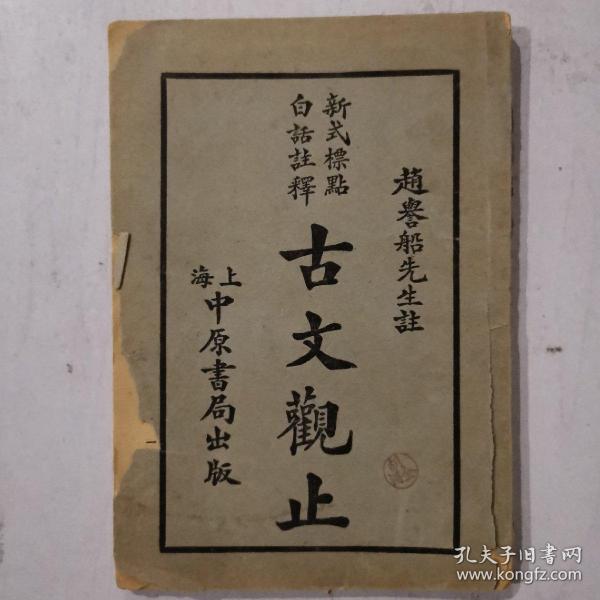 趙譽船先生註
新式標點
白話註釋
古文觀止
上海
中原書局出版
孔夫子旧书网
www.kongfz.com